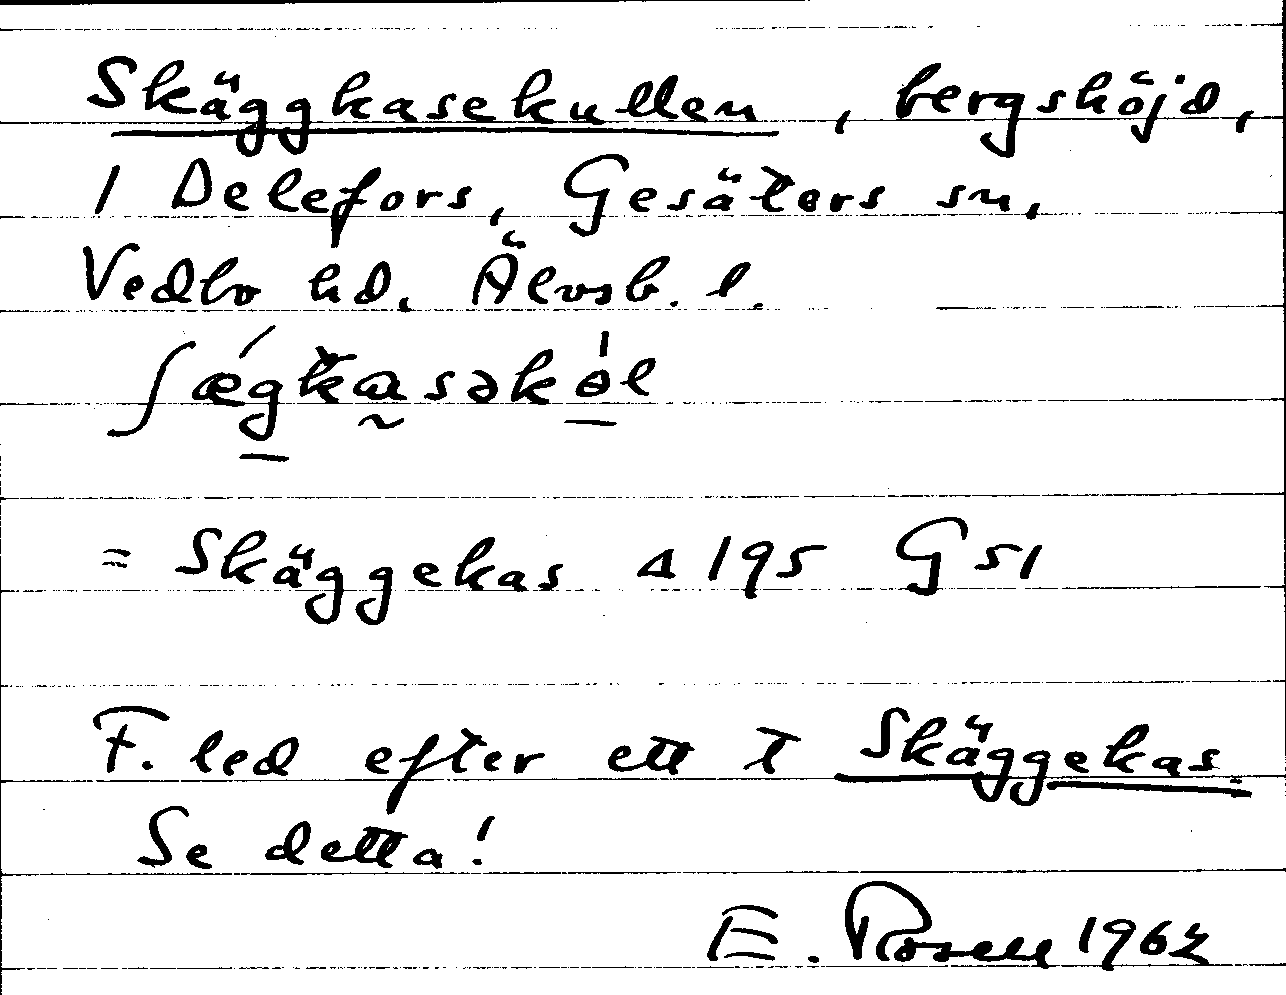 Skäggkasekullen, bergshöjd,
1 Delefors, Gesäters sn,
Vedbo hd. Älvsb. l.
ʃǽgkasəkȯl
= Skäggekas Δ 195 G 51
F. led efter ett t Skäggekas.
Se detta!
E. Rosell 1962